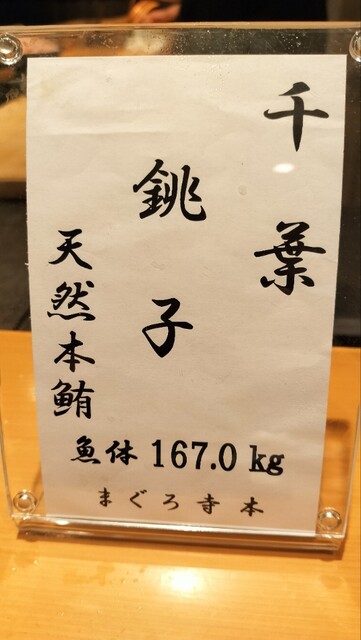 千葉
銚子
天然本鮪
魚体 167.0 kg
まぐろ寺本